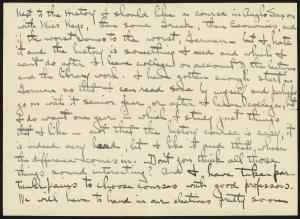 Next to the History I should like a course in Anglo Saxon
with Miss Keys. In some Greek the Economics and
if the worst comes to the worst German - but I hate
it and the history is something I need and which I
can't do after I leave college on account of the lectures
and the library work. I have gotten enough start in
German so that I can read some by myself and perhaps
go on with it senior year or after I leave college, but
I do want one year in which I study just things
that I like - not that the history course is easy, it
is indeed very hard, but I like it and that's where
the difference comes in. Don't you think all those
things sound interesting? And I have taken par-
ticular pains to choose courses with good professors.
We will have to hand in our electives pretty soon